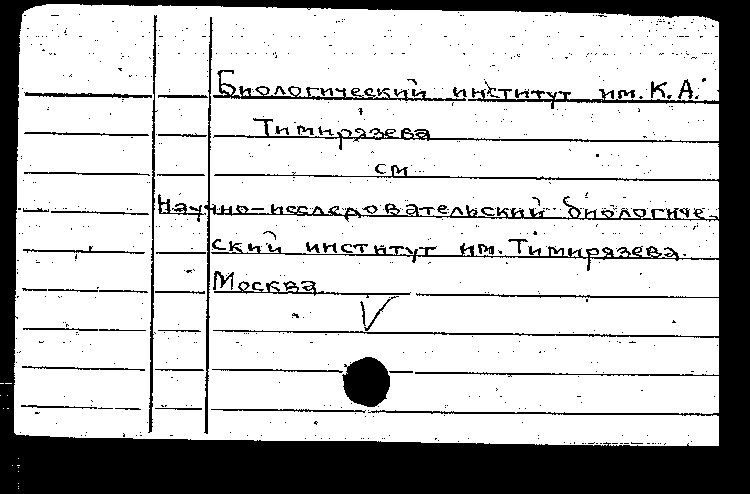 Биологический институт им. К.А.
Тимирязева
см
Научно-исследовательский биологиче-
ский институт им. Тимирязева.
Москва